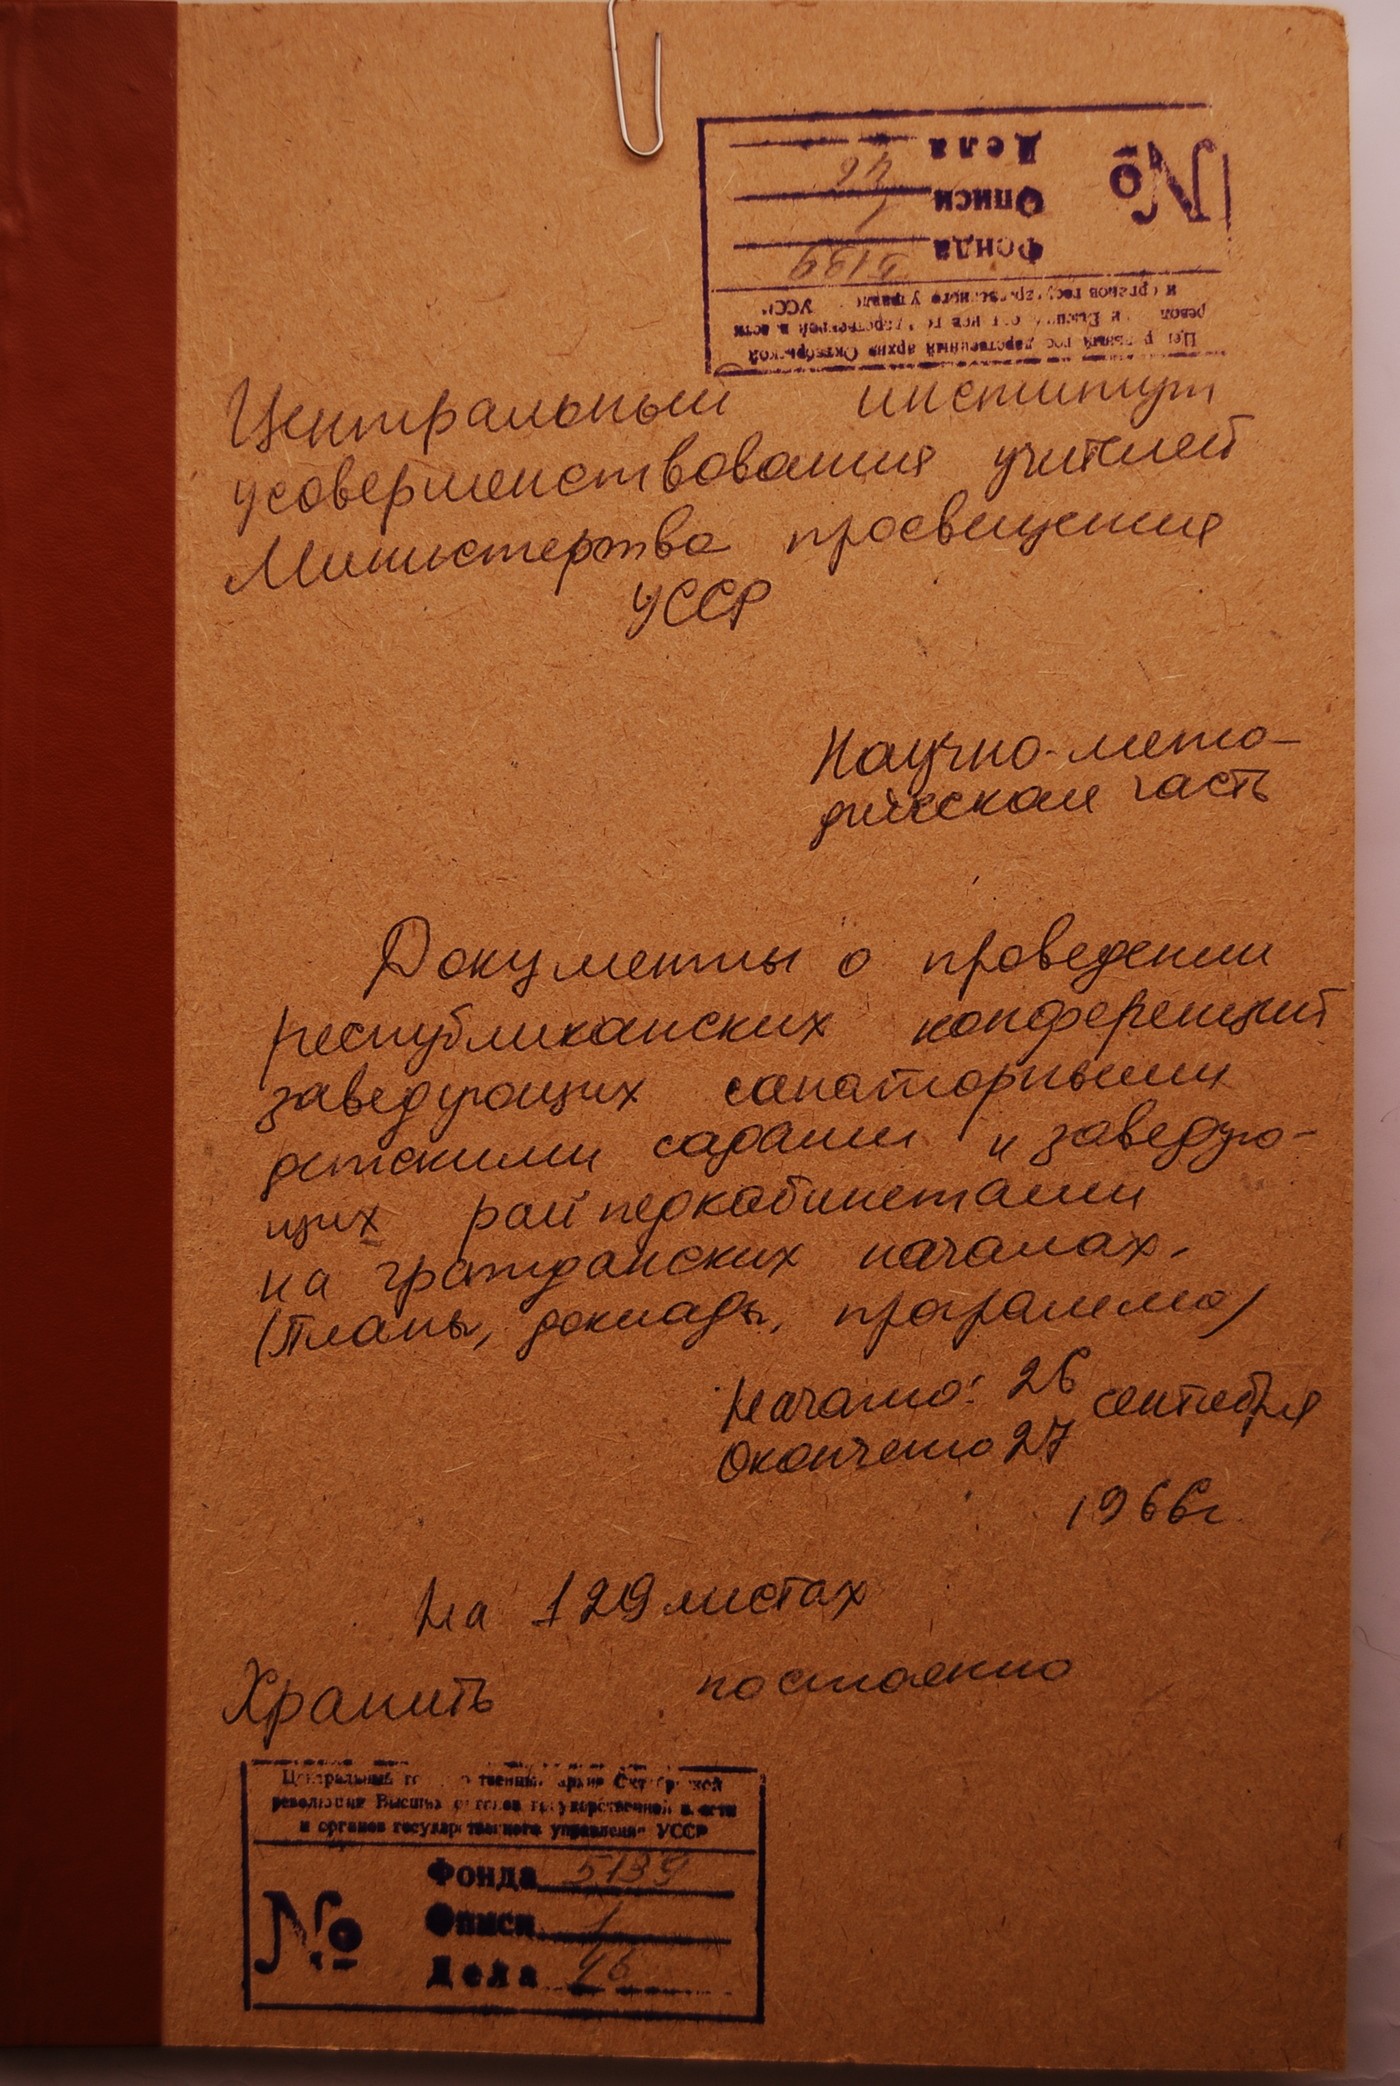 №
Дела
46
Описи
1
Фонда
5139
и органов государственного управления УССР
революции Высших органов государственной власти
Центральный государственный архив Октябрьской
Центральный институт
усовершенствования учителей
Министерства просвещения
УССР
Научно-мето-
дическая часть
Документы о проведении
республиканских конференций
заведующих санаторными
детскими садами и заведую-
щих райпедкабинетами
на гражданских началах.
(Планы, доклады, программа)
Начато: 26 сентября
Окончено 27
1966г
на 129 листах
Хранить постоянно
Центральный государственный архив Октябрьской
революции Высших органов государственной власти
и органов государственного управления УССР
№
Фонда 5139
Описи 1
Дела 46